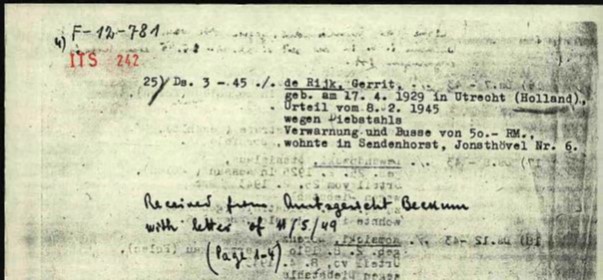 4) F-12-781
ITS 242
25) Ds. 3 - 45 ./. de Rijk, Gerrit,
geb. am 17. 4. 1929 in Utrecht (Holland),
Urteil vom 8. 2. 1945
wegen Diebstahls
Verwarnung und Busse von 50.- RM.,
wohnte in Sendenhorst, Jonsthövel Nr. 6.
Received from Amtsgericht Beckum
with letter of 11/5/49
(Page 1-4)